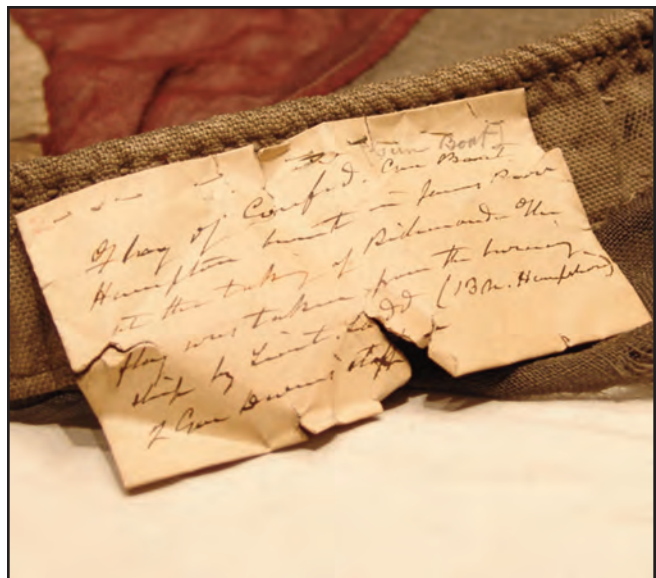 [Gun Boat]
Flag of Confed. Gun Boat
Hampton burnt in James River
at the taking of Richmond. The
flag was taken from the burning
ship by Lieut. Ladd (13 N. Hampshire)
of Gen Devens' staff